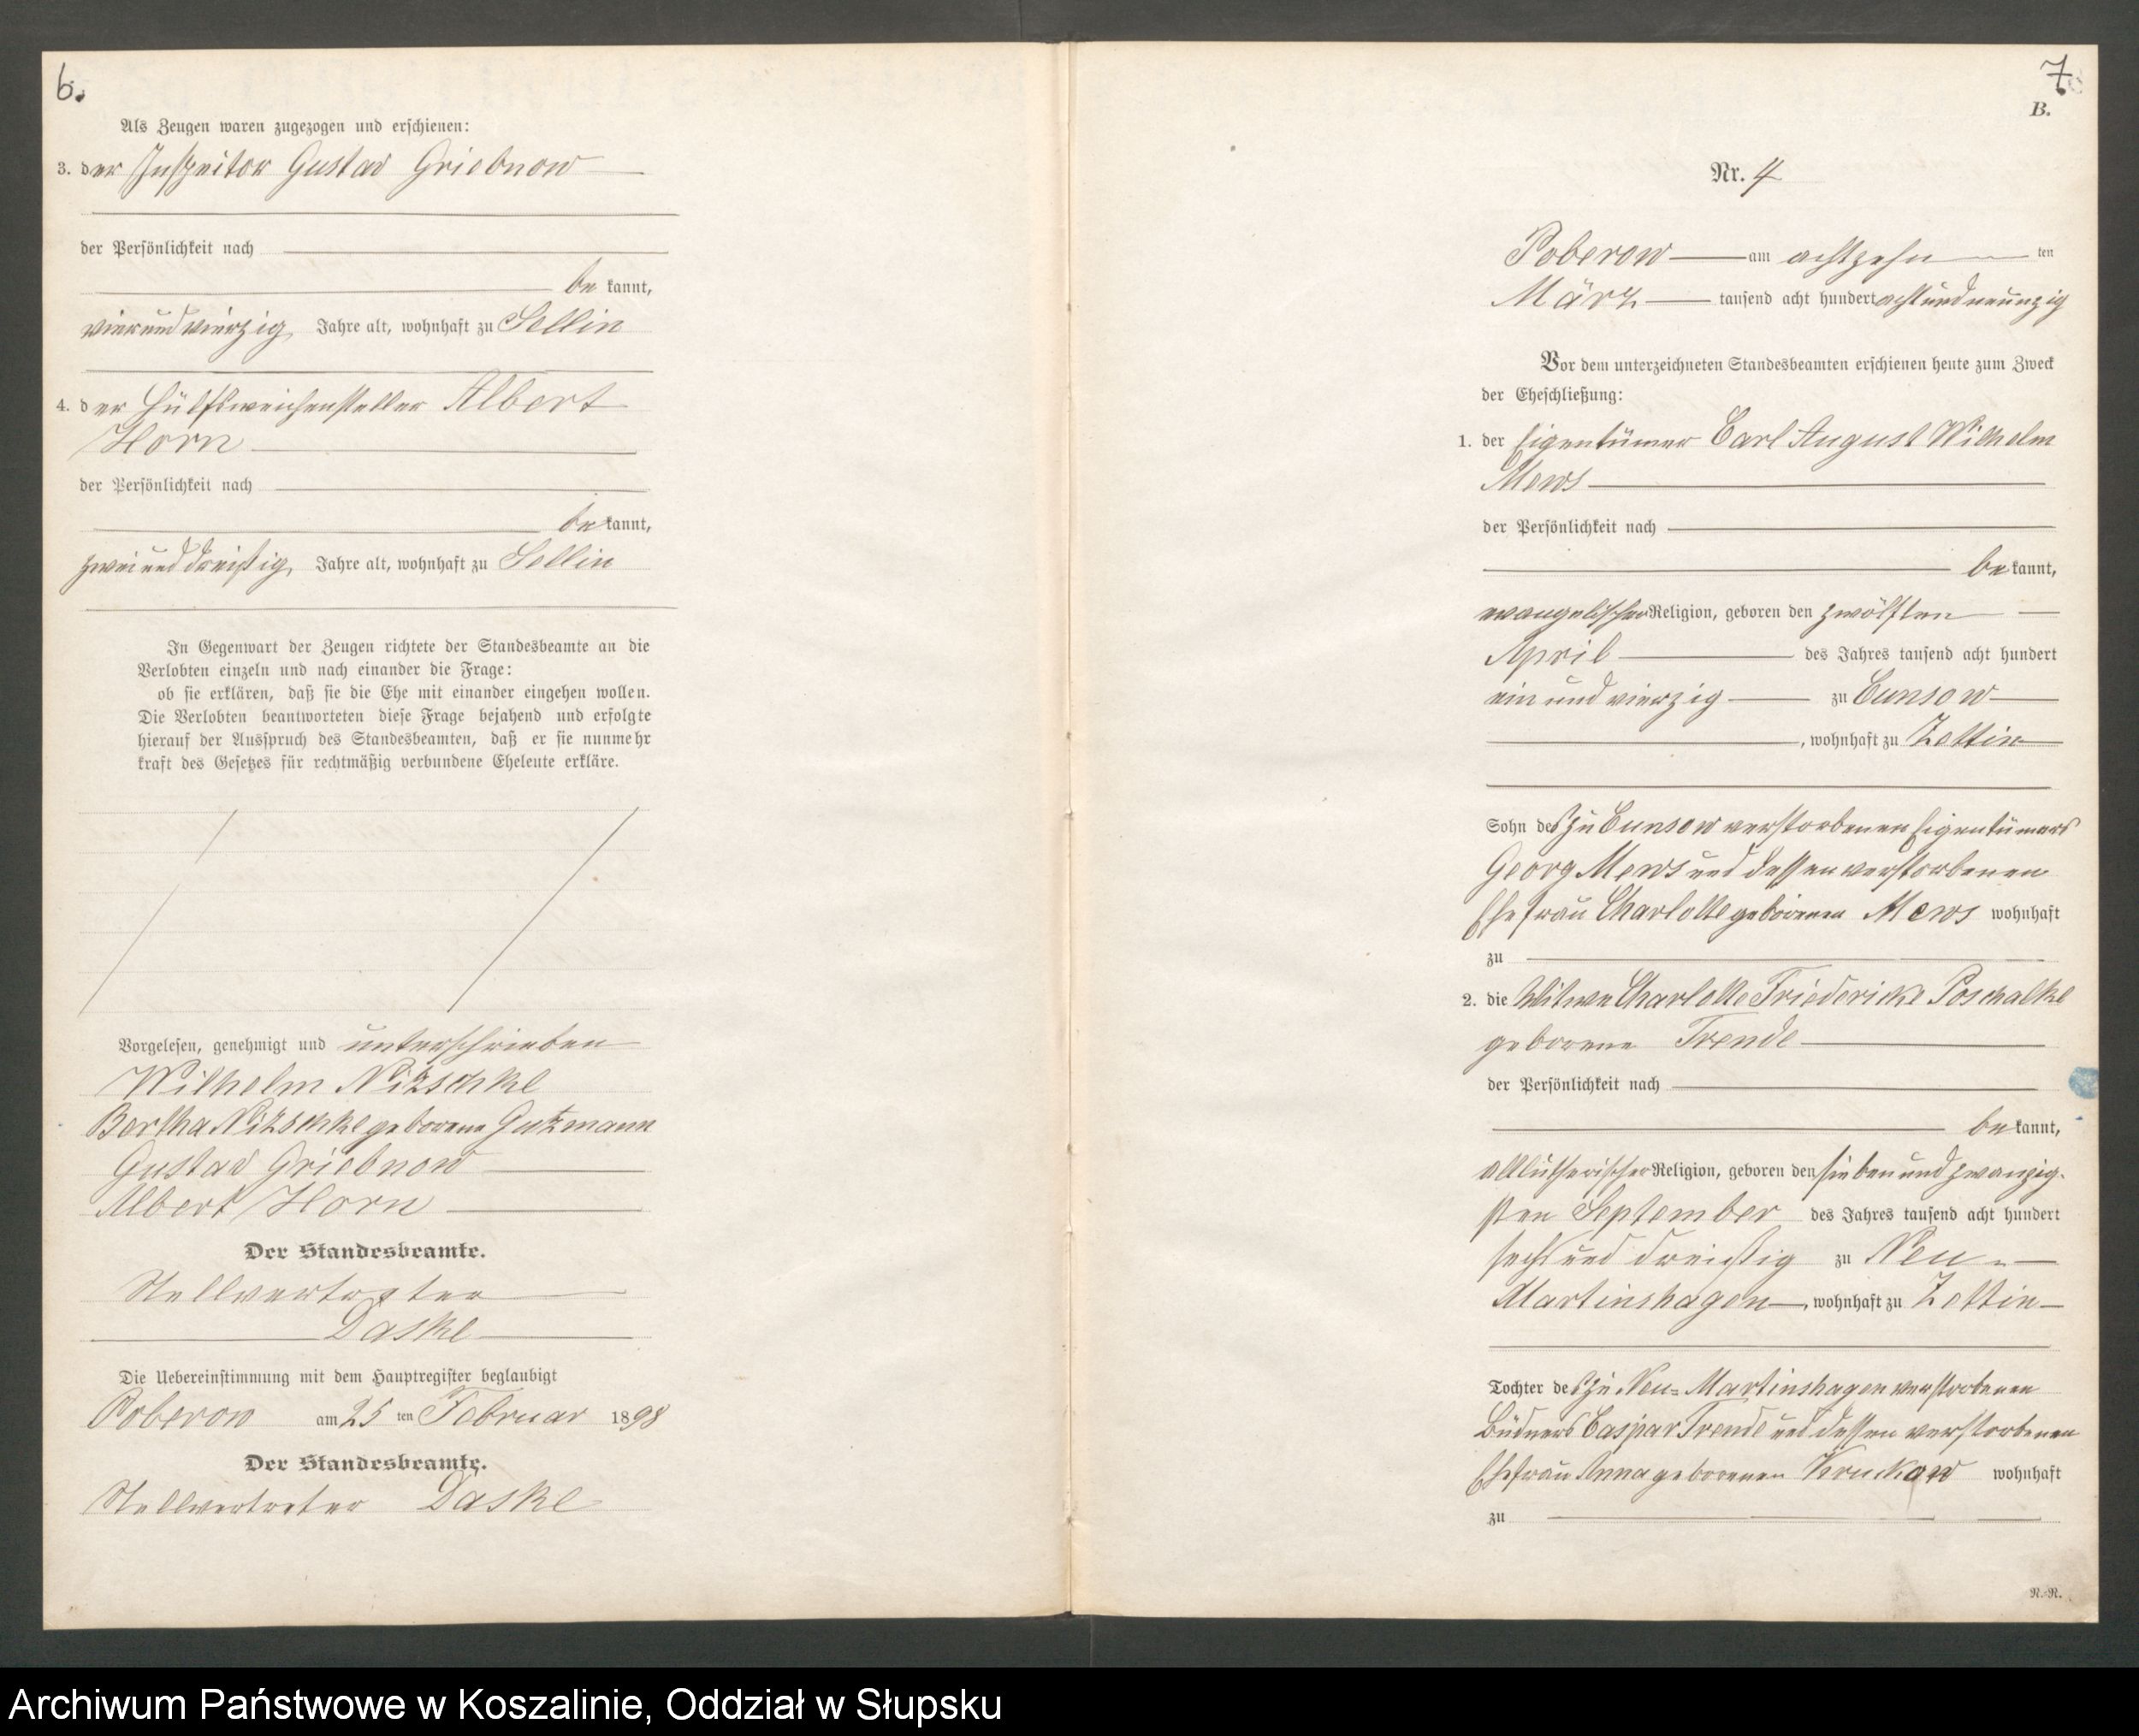 6.
Als Zeugen waren zugezogen und erschienen:
3. der Inspektor Gustav Griebnow
der Persönlichkeit nach
be kannt,
vierundvierzig Jahre alt, wohnhaft zu Sellin
4. der Hülfsweichensteller Albert
Horn
der Persönlichkeit nach
be kannt,
zweiunddreißig Jahre alt, wohnhaft zu Sellin
In Gegenwart der Zeugen richtete der Standesbeamte an die
Verlobten einzeln und nach einander die Frage:
ob sie erklären, daß sie die Ehe mit einander eingehen wollen.
Die Verlobten beantworteten diese Frage bejahend und erfolgte
hierauf der Ausspruch des Standesbeamten, daß er sie nunmehr
kraft des Gesetzes für rechtmäßig verbundene Eheleute erkläre.
Vorgelesen, genehmigt und unterschrieben
Wilhelm Nitzschke
Bertha Nitzschke geborene Gutzmann
Gustav Griebnow
Albert Horn
Der Standesbeamte.
Stellvertreter
Daske
Die Uebereinstimmung mit dem Hauptregister beglaubigt
Poberow am 25 ten Februar 1898
Der Standesbeamte.
Stellvertreter Daske
7.
B.
Nr. 4
Poberow am achtzehn ten
März tausend acht hundert achtundneunzig
Vor dem unterzeichneten Standesbeamten erschienen heute zum Zweck
der Eheschließung:
1. der Eigentümer Carl August Wilhelm
Mews
der Persönlichkeit nach
be kannt,
evangelischer Religion, geboren den zwölften
April des Jahres tausend acht hundert
ein und vierzig zu Cunsow
, wohnhaft zu Zettin
Sohn des zu Cunsow verstorbenen Eigentümers
Georg Mews und dessen verstorbenen
Ehefrau Charlotte geborenen Mews wohnhaft
zu
2. die Witwe Charlotte Friedericke Poschalke
geborene Trende
der Persönlichkeit nach
be kannt,
altlutherischer Religion, geboren den sieben und zwanzig-
sten September des Jahres tausend acht hundert
sechs und dreißig zu Neu-
Martinshagen, wohnhaft zu Zettin
Tochter des zu Neu-Martinshagen verstorbenen
Büdners Caspar Trende und dessen verstorbenen
Ehefrau Anna geborenen Kruckow wohnhaft
zu
N.-R.
Archiwum Państwowe w Koszalinie, Oddział w Słupsku